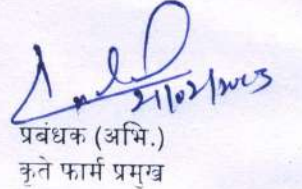 21/02/2023
प्रबंधक (अभि.)
कृते फार्म प्रमुख